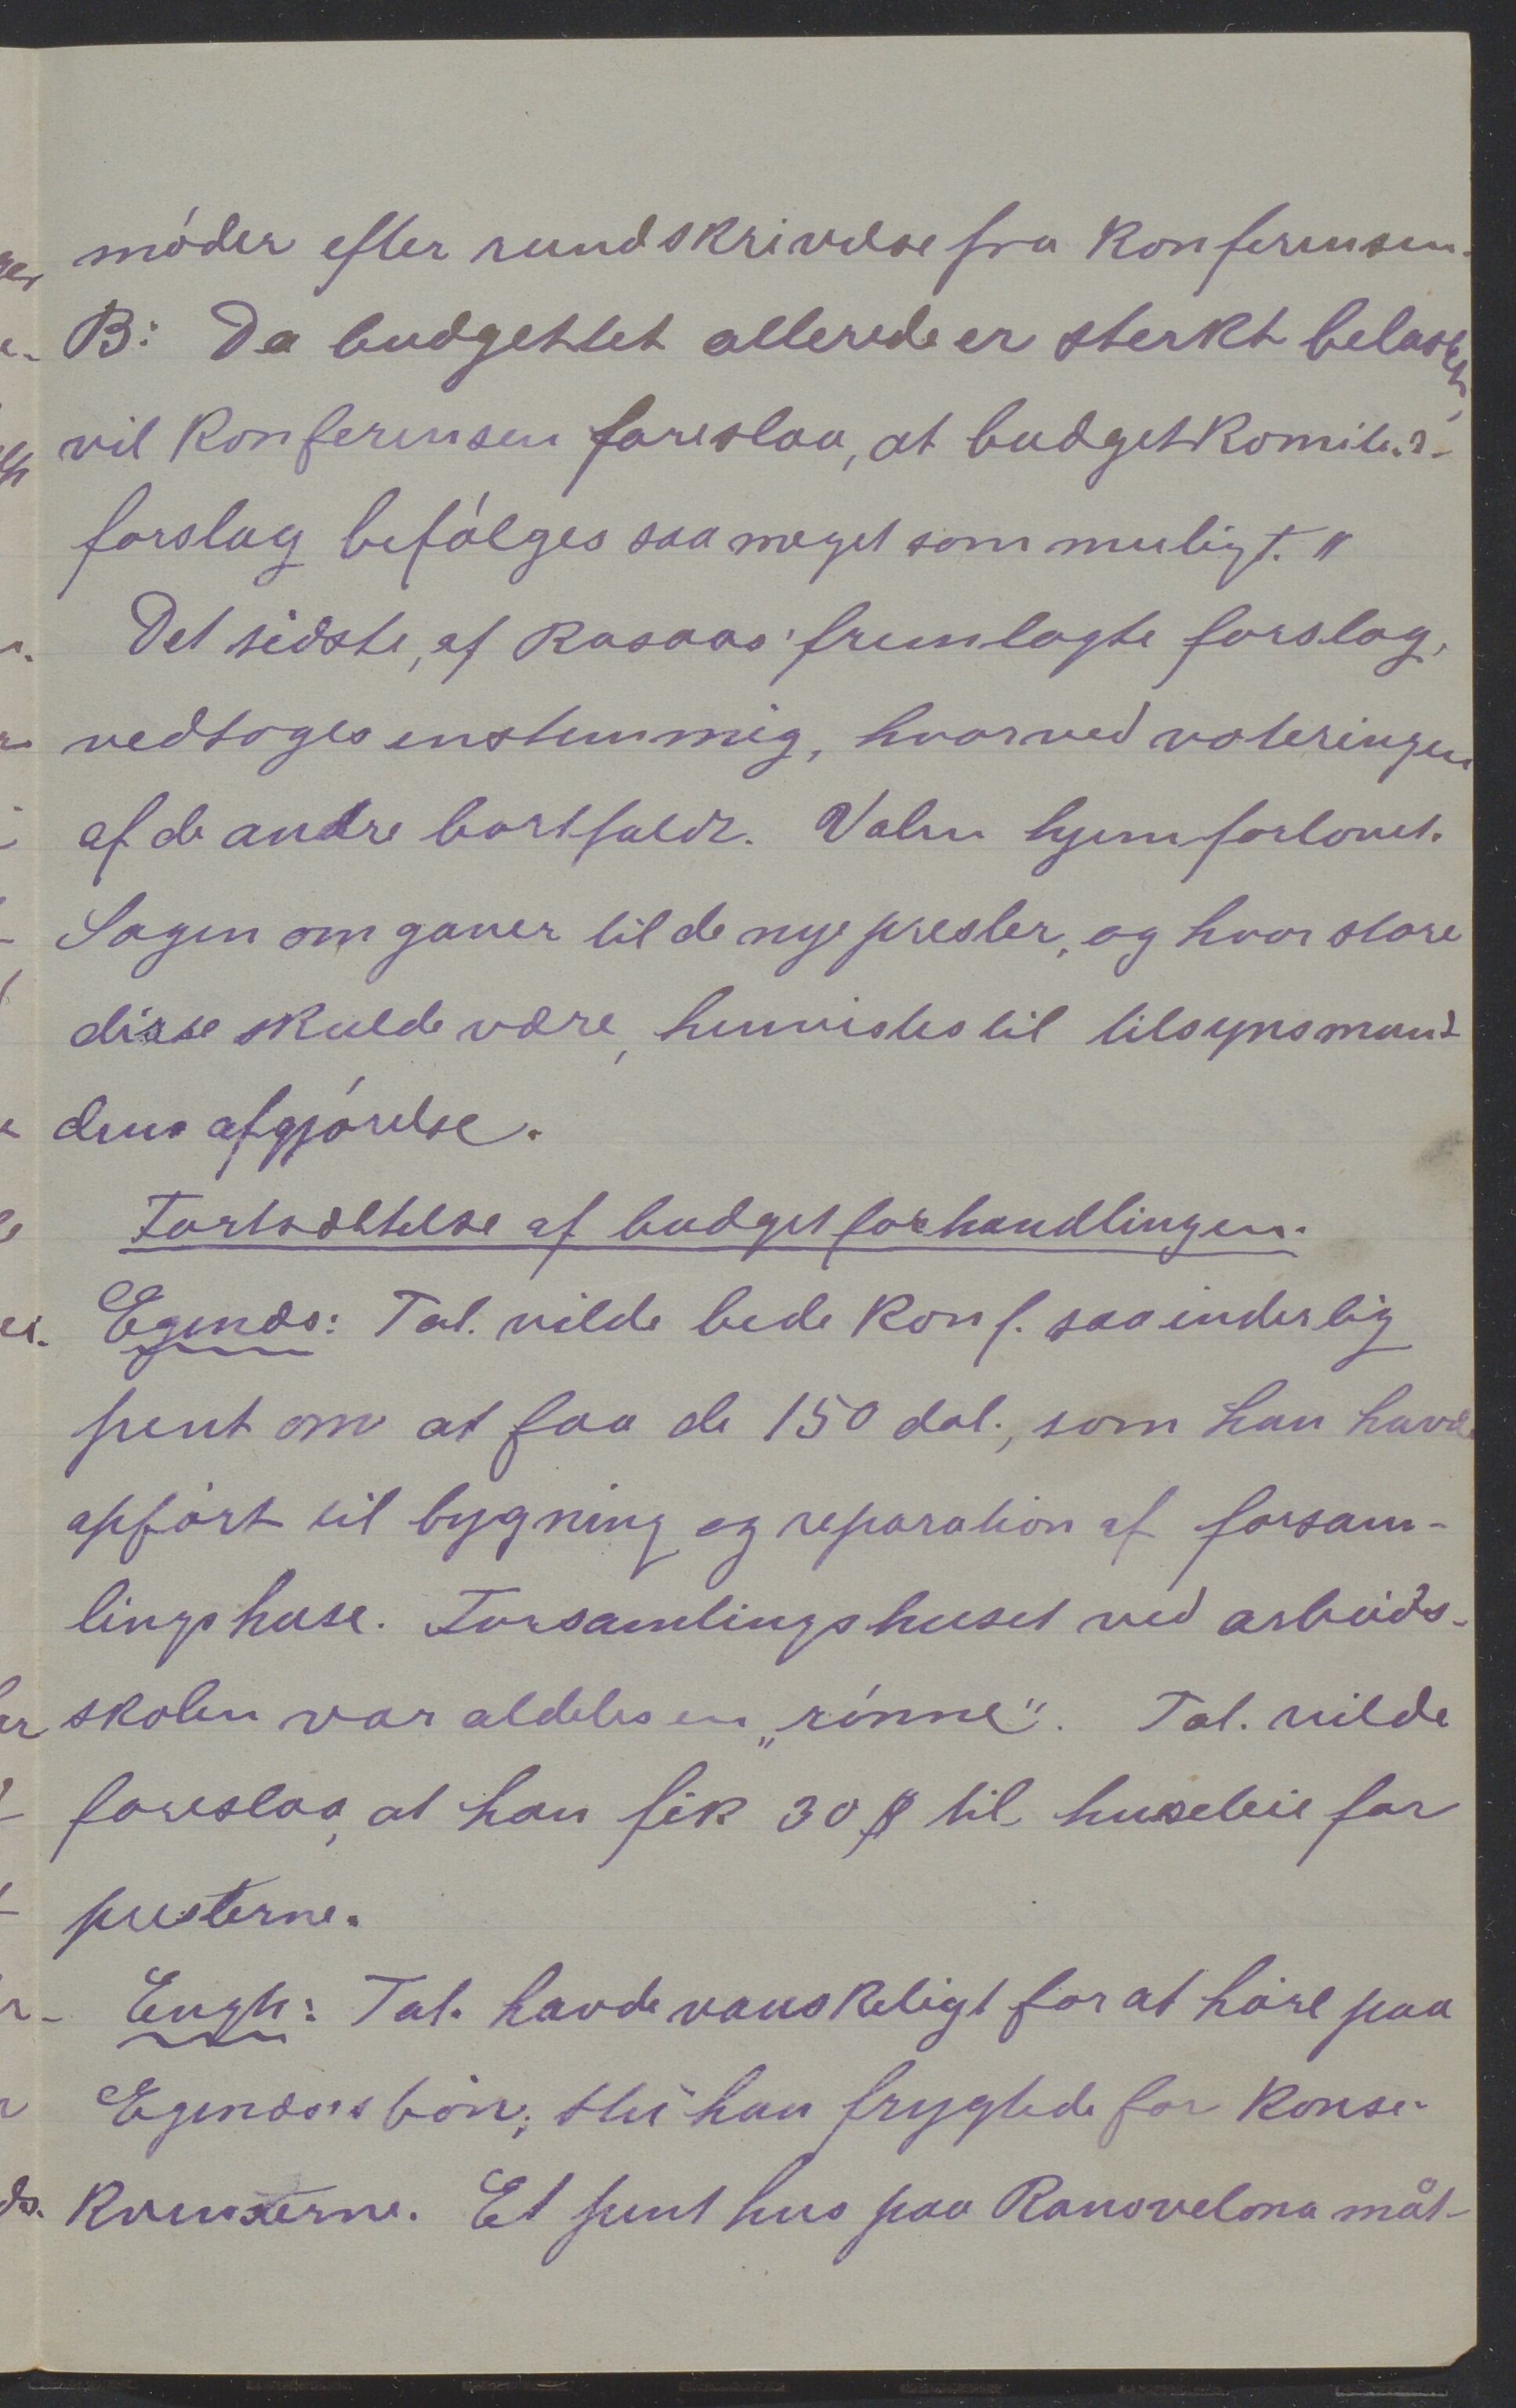 møder efter rundskrivelse fra konferensen.
B: Da budgettet allerede er sterkt belastet,
vil konferensen foreslaa, at budgetkomiteens
forslag befølges saa meget som muligt."
Det sidste, af Rasaas' fremlagte forslag,
vedtoges enstemmig, hvorved voteringen
af de andre bortfaldt. Valen hjemforlovet.
Sagen om gaver til de nye prester, og hvor store
disse skulde være, henvistes til tilsynsmand-
dens afgjørelse.
Fortsættelse af budgetforhandlingen.
Egenæs: Tal. vilde bede konf. saa inderlig
pent om at faa de 150 dol., som han havde
opført til bygning og reparation af forsam-
lingshuse. Forsamlingshuset ved arbeids-
skolen var aldeles en „rønne". Tal. vilde
foreslaa, at han fik 30 $ til husleie for
presterne.
Engh: Tal. havde vanskeligt for at høre paa
Egenæs's bøn; thi han frygtede for konse-
kvenserne. Et pent hus paa Ranovelona måt-